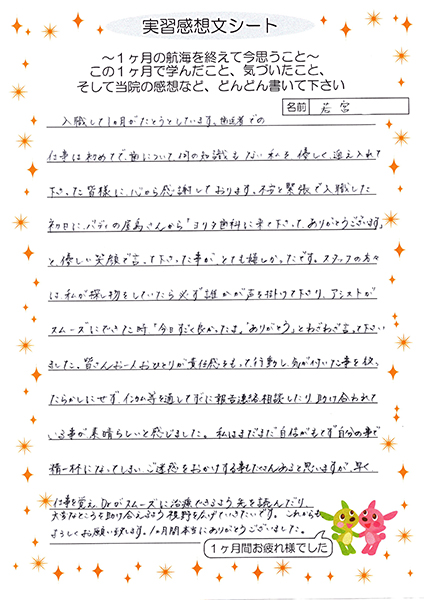 実習感想文シート
～1ヶ月の航海を終えて今思うこと～
この1ヶ月で学んだこと、気づいたこと、
そして当院の感想など、どんどん書いて下さい
名前 若宮
入職して1ヵ月がたとうとしています。歯医者での
仕事は初めてで歯について何の知識もない私を優しく迎え入れて
下さった皆様に、心から感謝しております。不安と緊張で入職した
初日に、バディの尾島さんから「ヨリタ歯科に来て下さって、ありがとうございます」
と優しい笑顔で言って下さった事がとても嬉しかったです。スタッフの方々
は私が探し物をしていたら必ず誰かが声を掛けて下さり、アシストが
スムーズにできた時「今日すごく良かったよ」「ありがとう」とわざわざ言って下さい
ました。皆さんお一人おひとりが責任感をもって行動し、気が付いた事を
たらかしにせず、インカム等を通してすぐに報告連絡相談したり、助け合われて
いる事が素晴らしいと感じました。私はまだまだ自信がもてず自分の事で
精一杯になってしまい、ご迷惑をおかけする事もたくさんあると思いますが、早く
仕事を覚え、Drがスムーズに治療できるよう先を読んだり
大変なところを助け合えるよう視野を広げていきたいです。これからも
よろしくお願い致します。1ヵ月間本当にありがとうございました。
1ヶ月間お疲れ様でした